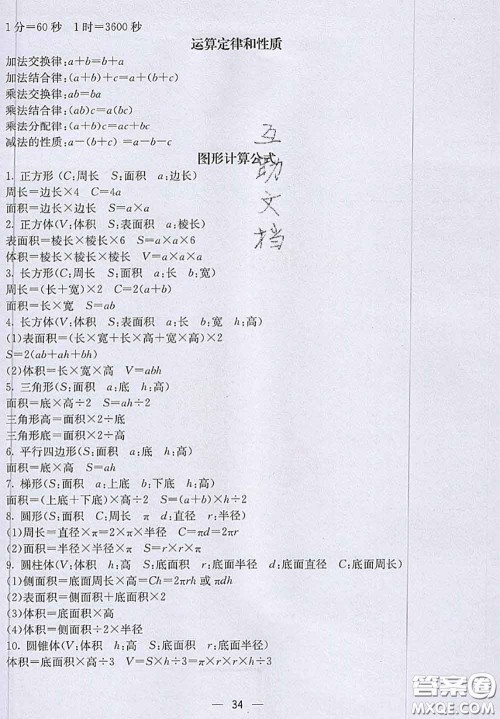 1分=60秒　1时=3600秒
运算定律和性质
加法交换律:a+b=b+a
加法结合律:(a+b)+c=a+(b+c)
乘法交换律:ab=ba
乘法结合律:(ab)c=a(bc)
乘法分配律:(a+b)c=ac+bc
减法的性质:a-(b+c)=a-b-c
图形计算公式
1. 正方形 (C:周长　S:面积　a:边长)
周长=边长×4　C=4a
面积=边长×边长　S=a×a
2. 正方体(V:体积　S:表面积　a:棱长)
表面积=棱长×棱长×6　S=a×a×6
体积=棱长×棱长×棱长　V=a×a×a
3. 长方形(C:周长　S:面积　a:长　b:宽)
周长=(长+宽)×2　C=2(a+b)
面积=长×宽　S=ab
4. 长方体(V:体积　S:表面积　a:长　b:宽　h:高)
(1)表面积=(长×宽+长×高+宽×高)×2
S=2(ab+ah+bh)
(2)体积=长×宽×高　V=abh
5. 三角形(S:面积　a:底　h:高)
面积=底×高÷2　S=ah÷2
三角形高=面积×2÷底
三角形底=面积×2÷高
6. 平行四边形(S:面积　a:底　h:高)
面积=底×高　S=ah
7. 梯形(S:面积　a:上底　b:下底　h:高)
面积=(上底+下底)×高÷2　S=(a+b)×h÷2
8. 圆形(S:面积　C:周长　π　d:直径　r:半径)
(1)周长=直径×π=2×π×半径　C=πd=2πr
(2)面积=半径×半径×π　S=r×r×π
9. 圆柱体(V:体积　S:底面积　r:底面半径　d:底面直径　C:底面周长)
(1)侧面积=底面周长×高=Ch=2πrh 或 πdh
(2)表面积=侧面积+底面积×2
(3)体积=底面积×高
(4)体积=侧面积÷2×半径
10. 圆锥体(V:体积　h:高　S:底面积　r:底面半径)
体积=底面积×高÷3　V=S×h÷3=π×r×r×h÷3
— 34 —
互助文档
答案圈
MXQE.COM